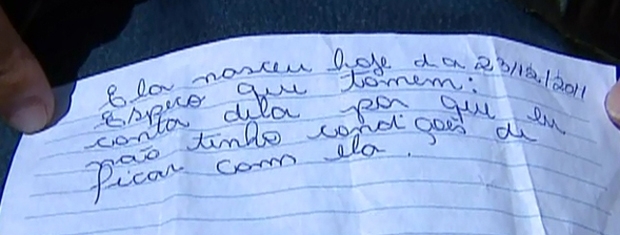 Ela nasceu hoje da 23/12/2011
Espero que tomem:
conta dela por que eu
não tinho condições de
ficar com ela.